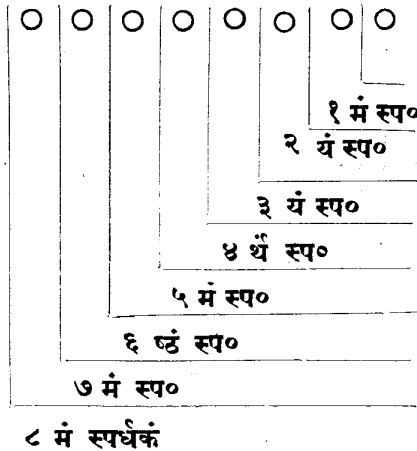 १ मं स्प०
२ यं स्प०
३ यं स्प०
४ र्थं स्प०
५ मं स्प०
६ ष्ठं स्प०
७ मं स्प०
८ मं स्पर्धकं